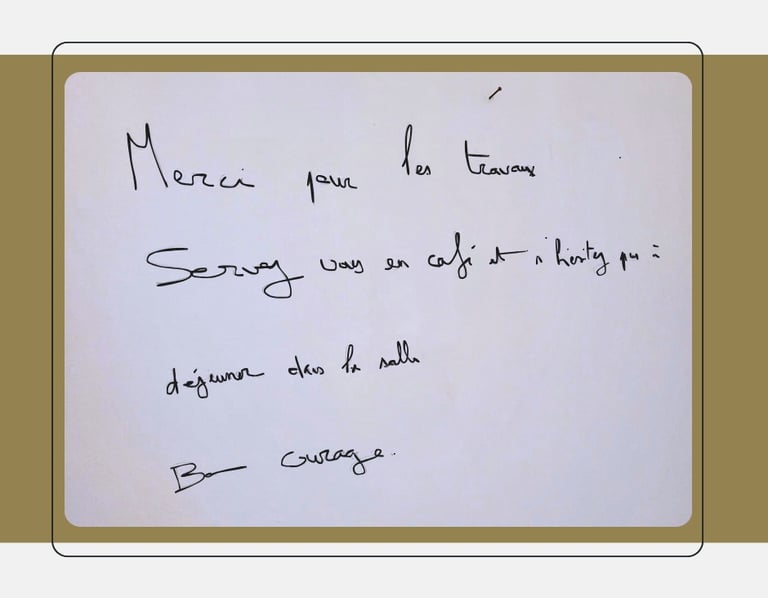 Merci pour les travaux
Servez vous en café et n'hésitez pas à
déjeuner dans la salle
Bon courage.